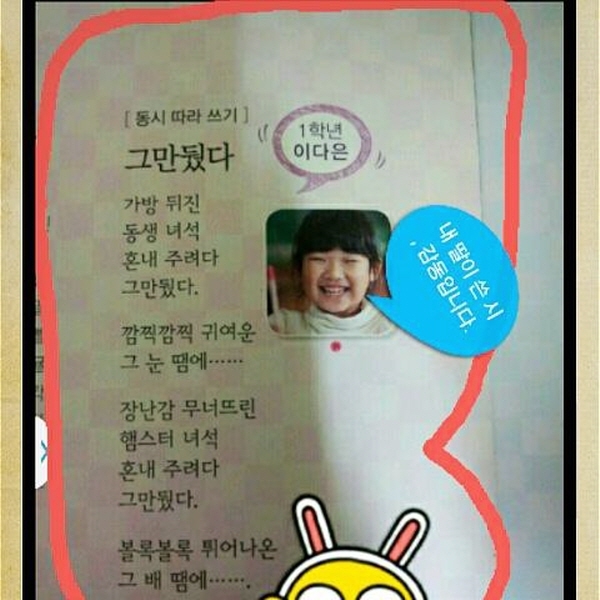 [ 동시 따라 쓰기 ]
1학년
이다은
그만뒀다
가방 뒤진
동생 녀석
혼내 주려다
그만뒀다.
깜찍깜찍 귀여운
그 눈 땜에……
장난감 무너뜨린
햄스터 녀석
혼내 주려다
그만뒀다.
볼록볼록 튀어나온
그 배 땜에…….
내 딸이 쓴 시
, 감동입니다.